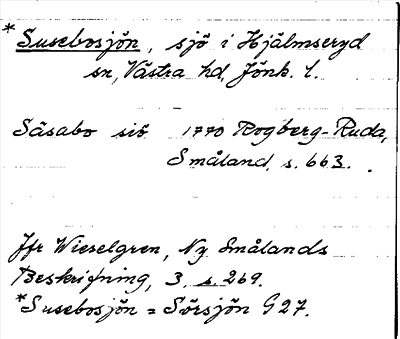 *Susebosjön, sjö i Hjälmseryd
sn, Västra hd, Jönk. l.
Säsabo siö 1770 Rogberg-Ruda,
Småland, s. 663.
Jfr Wieselgren, Ny Smålands
Beskrifning, 3, s. 269.
*Susebosjön = Sörsjön G 27.